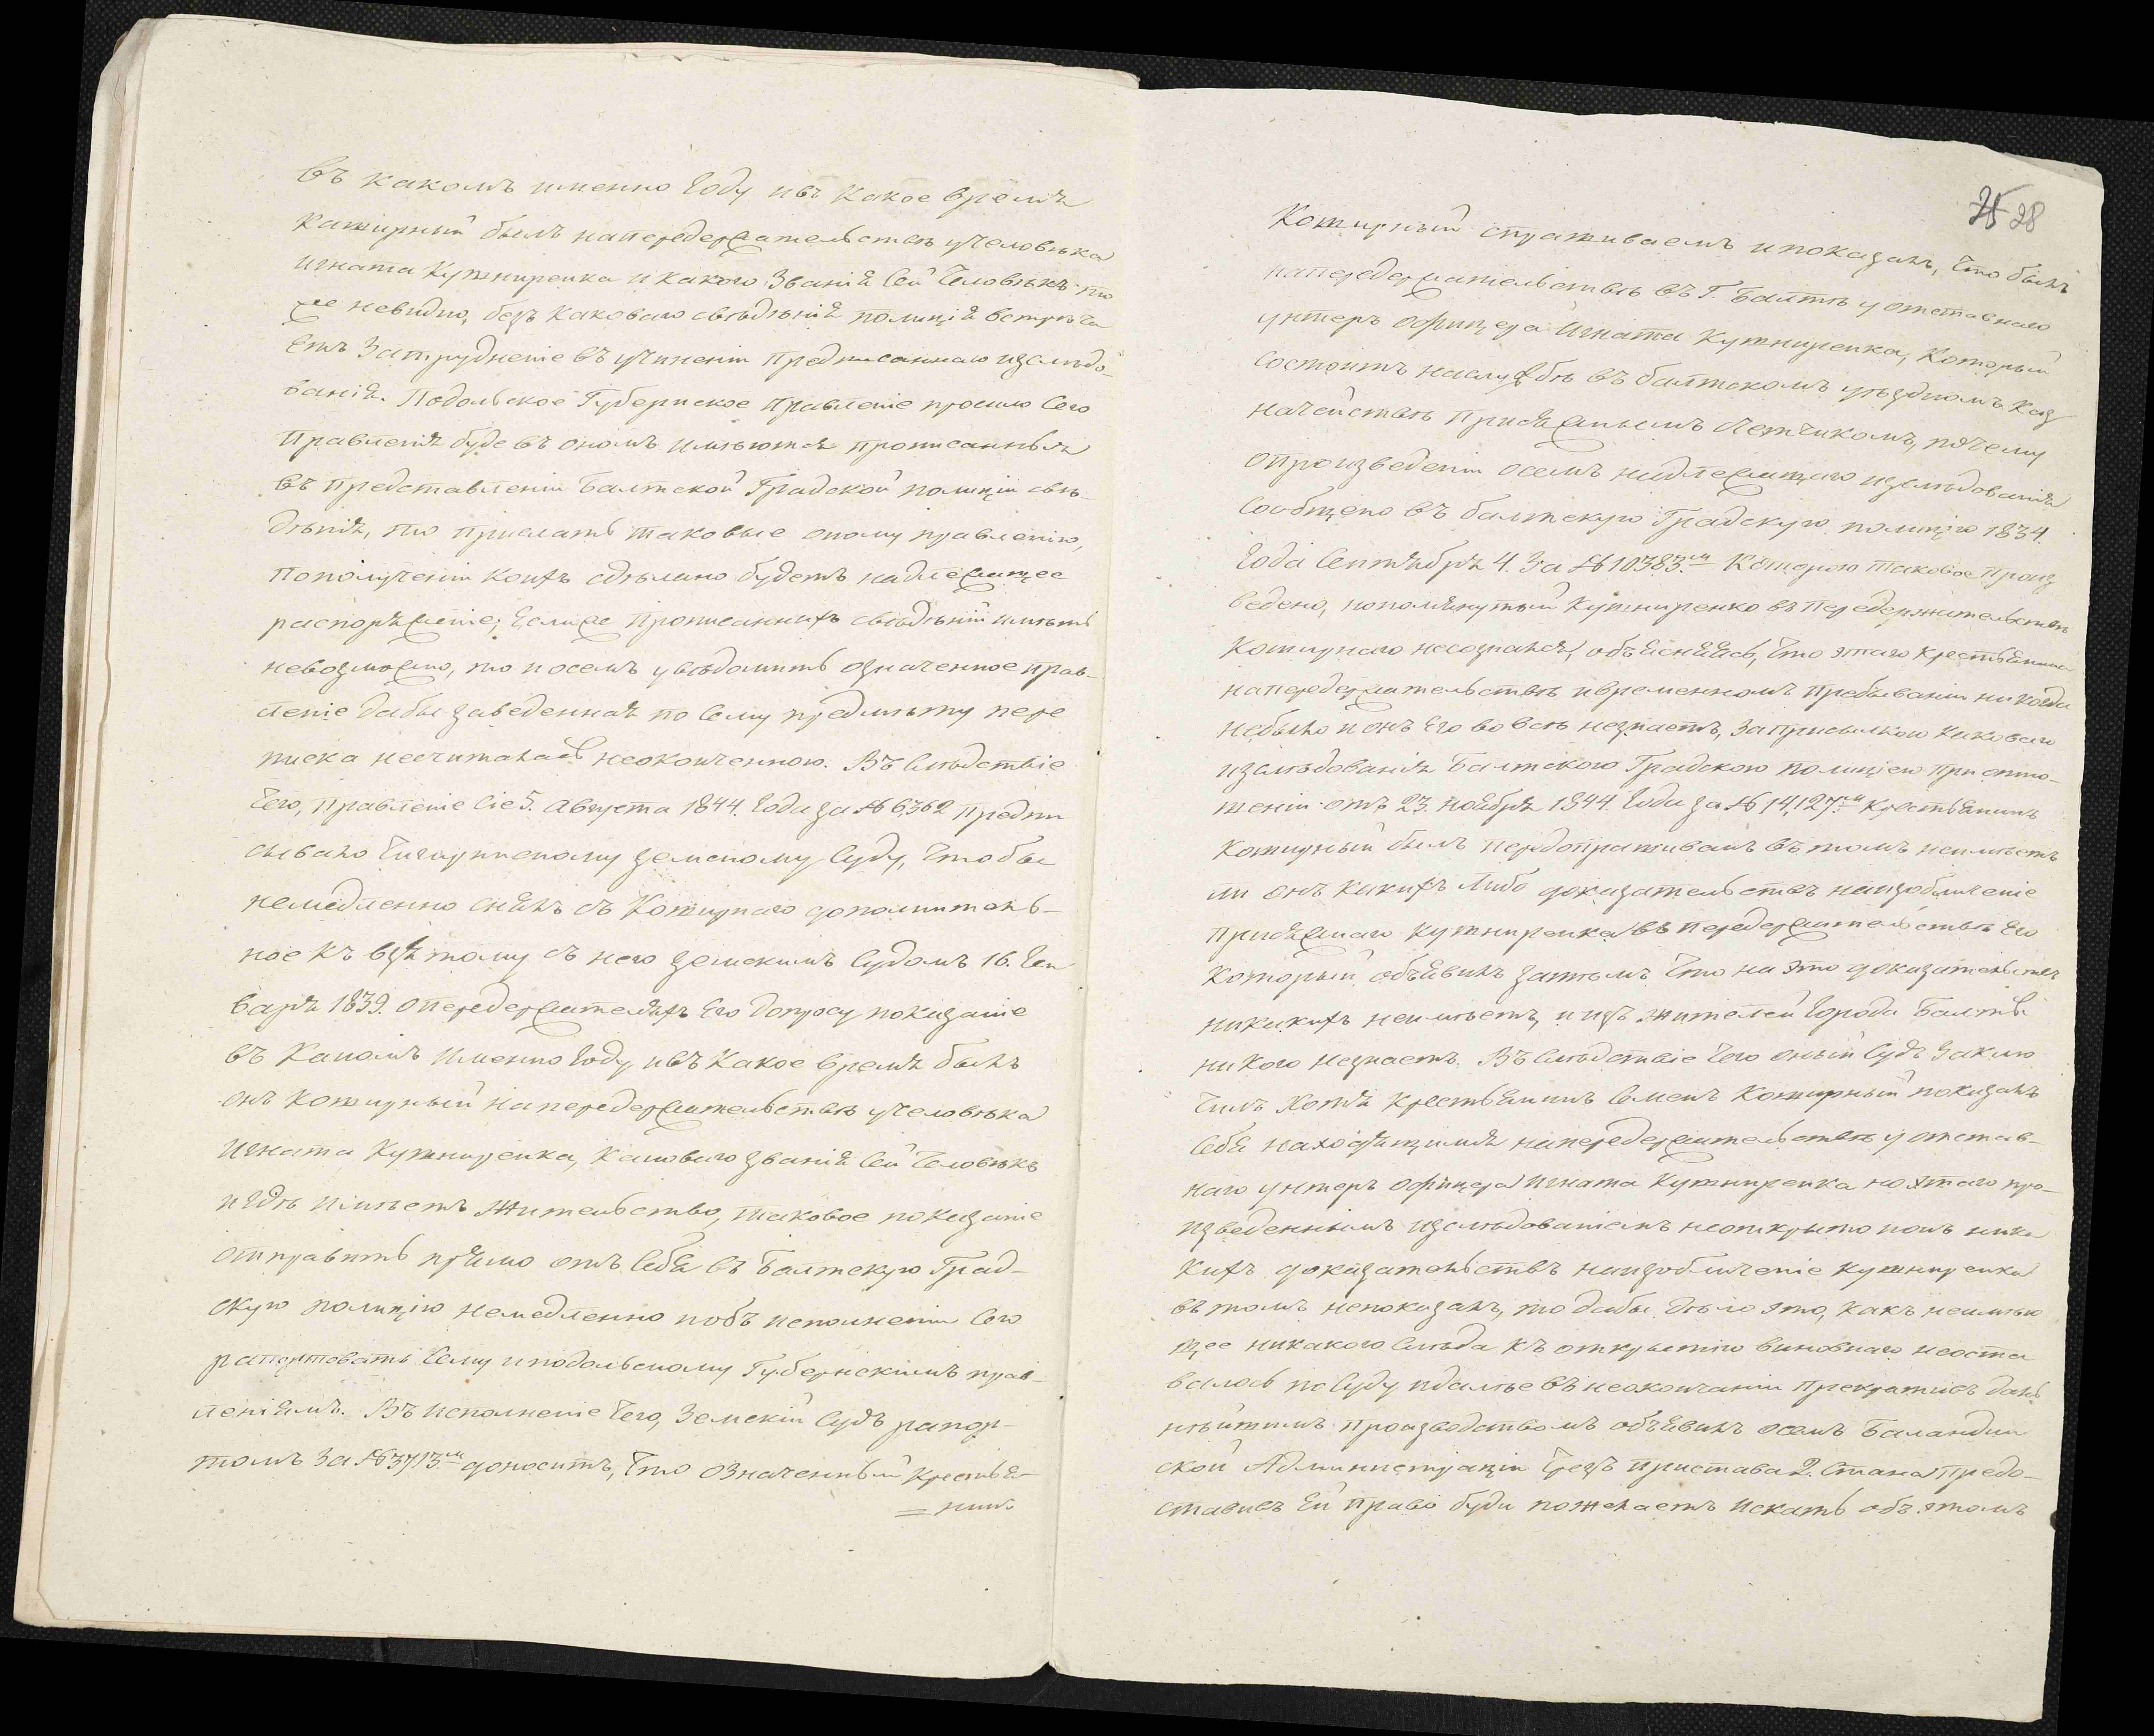 въ какомъ именно году ивъ какое время
Каширный былъ напередержательствѣ учеловѣка
Игната Кушниренка и какого званія сей человѣкъ то
же невидно, безъ каковаго свѣдѣнія полиція встрѣча
етъ затрудненіе въ учиненіи предписаннаго изслѣдо-
ванія. Подольское Губернское Правленіе просило сего
Правленія буде въ ономъ имѣются прописанныя
въ представленіи Балтской Градской полиціи свѣ-
дѣнія, то прислать таковые оному правленію,
пополученіи коихъ сдѣлано будетъ надлежащее
распоряженіе; Если же прописанныхъ свѣдѣній имѣть
невозможно, то и осемъ увѣдомить означенное прав-
леніе дабы заведенная по сему предмѣту пере
писка несчиталась неоконченною. Въ слѣдствіе
чего, правленіе сіе 5. Августа 1844. года за № 6,362 предпи
сывало Чигиринскому земскому суду, чтобы
немедленно снялъ съ Коширнаго дополнитель-
ное къ взятому съ него земскимъ судомъ 16. Ген
варя 1839. опередержателяхъ его допросу показаніе
въ каномъ именно году ивъ какое время былъ
онъ Коширный напередержательствѣ учеловѣка
Игната Кушниренка, каковаго званія сей человѣкъ
и гдѣ имѣетъ жительство, таковое показаніе
отправить прямо отъ себя въ Балтскую Град-
скую полицію немедленно иобъ исполненіи сего
рапортовать сему иподольскому Губернскимъ прав-
леніямъ. Въ исполненіе чего, Земскій судъ рапор-
томъ за № 3713.м доноситъ, что означенный крестья-
= нинъ
25 28
Коширный спрашиваемъ ипоказалъ, что былъ
напередержательствѣ въ Г. Балтѣ у отставнаго
унтеръ офицера Игната Кушниренка, который
состоитъ наслужбѣ въ балтскомъ уѣздномъ каз
начействѣ присяжнымъ счетчикомъ, почему
опроизведеніи осемъ надлежащаго изслѣдованія
сообщено въ балтскую Градскую полицію 1834.
года Сентября 4. за № 10383.м которою таковое произ
ведено, ипомянутый Кушниренко въ передержительствѣ
Коширнаго несознался, объясняясь, что этаго крестьянина
напередержательствѣ ивременномъ пребываніи никогда
небыло и онъ его вовсѣ незнаетъ, заприсылкою каковаго
изслѣдованія Балтскою Градскою полиціею при отно-
шеніи отъ 23. ноября 1844. года за № 14,127.м крестьянинъ
Коширный былъ передопрашиванъ въ томъ неимѣетъ
ли онъ какихъ либо доказательствъ наизобличеніе
присяжнаго Кушниренка въ передержательствѣ его
который объявилъ затѣмъ что на это доказательствъ
никакихъ неимѣетъ, и изъ жителей города Балты
никого незнаетъ. Въ слѣдствіе чего оный судъ заклю
чилъ хотя крестьянинъ Семенъ Коширный показалъ
себя находящимся напередержательствѣ у отстав-
наго унтеръ офицера Игната Кушниренка но этаго про-
изведеннымъ изслѣдованіемъ неоткрыто ионъ ника
кихъ доказательствъ наизобличеніе Кушниренка
въ томъ непоказалъ, то дабы дѣло это, какъ неимѣю
щее никакого слѣда къ открытію виновнаго неоста
валось по суду идалѣе въ неокончаніи прекративъ даль
нѣйшимъ производствомъ объявилъ осемъ Баландин
ской Администраціи чрезъ пристава 2. стана предо-
ставивъ ей право буди пожелаетъ искать объ этомъ